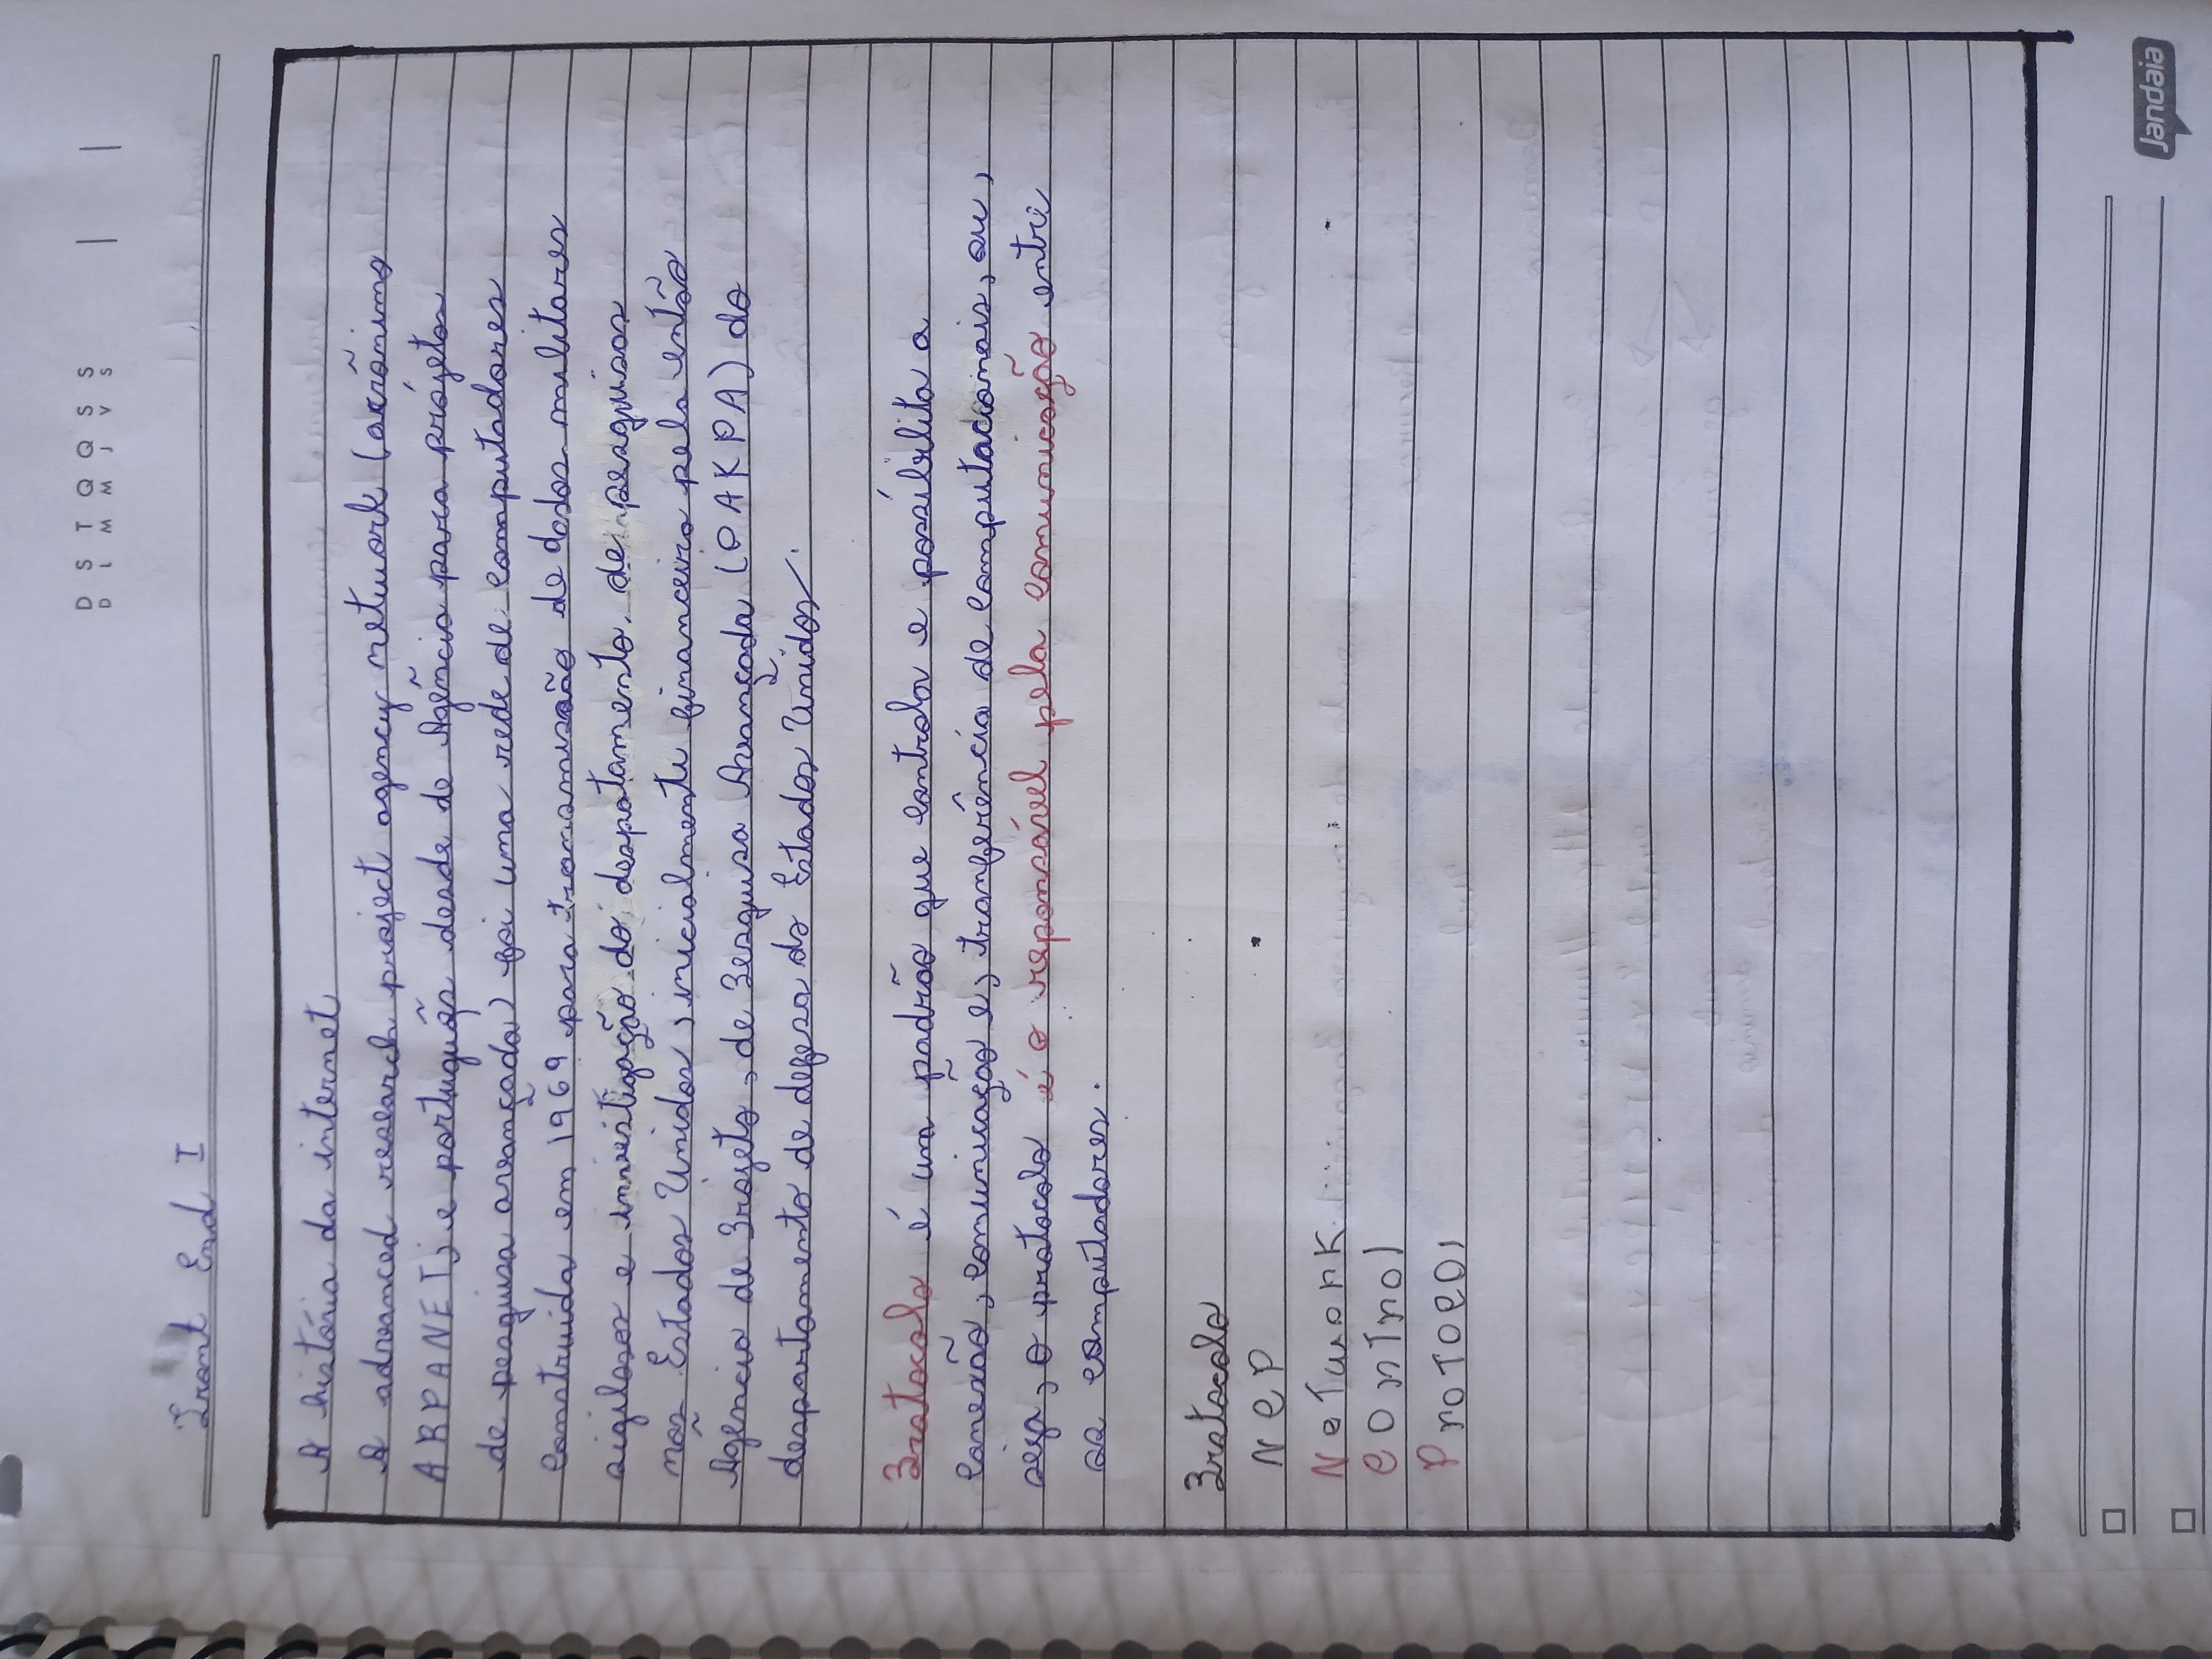 D S T Q Q S S
D L M M J V S
Front End I
A história da internet
A advanced research project agency network (acrõnimo
ARPANET; e portuguẽs desde de Agẽncia para prójetos
de pesquisa avançada) foi uma rede de computadores
construida em 1969 para transmissão de dados militares
sigilosos e investigação do despatamento. de pesquisas
nos Estados Unidos, inicialmente financeiro pela então
Agẽncia de Projeto, de Pesquisa Avançada (OAKPA) do
despartamento de defesa do Estados Unidos.
Protocolo é um padrão que controla e possíbilita a
conexão, comunicação e, tranferência de computacionais, ou,
seja, o protocolo é o reponsável pela comunicação entre
os computadores.
Protocolo
NCP
Network
Control
Protocol
Jandaia